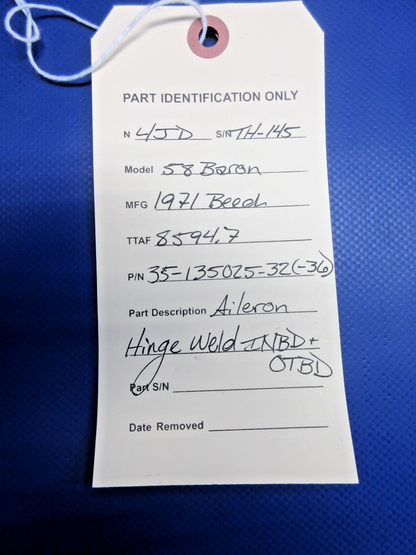 PART IDENTIFICATION ONLY
N 4JD S/N TH-145
Model 58 Baron
MFG 1971 Beech
TTAF 8594.7
P/N 35-135025-32(-36)
Part Description Aileron
Hinge Weld INBD +
OTBD
Part S/N
Date Removed